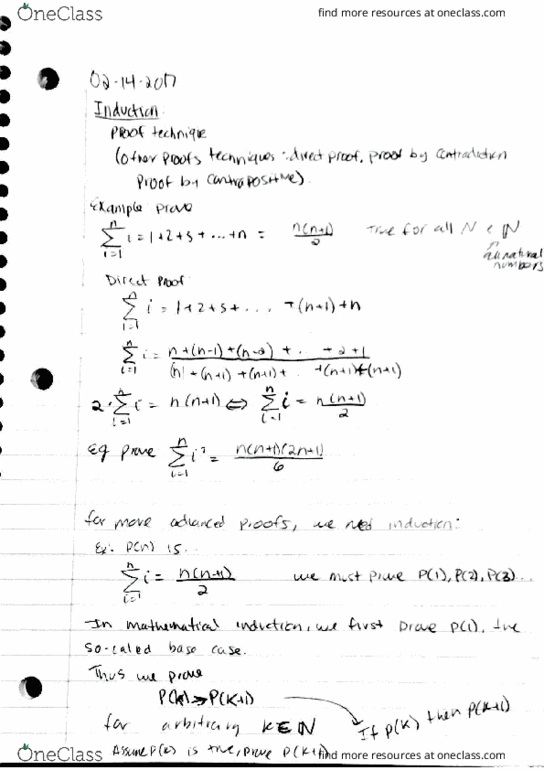 OneClass find more resources at oneclass.com
02-14-2017
Induction
Proof technique
(other proofs techniques: direct proof, proof by contradiction
Proof by contrapositive).
Example prove
n∑i=1 i = 1+2+3+...+n = n(n+1)/2 True for all N ∈ ℕ
all natural
numbers
Direct Proof
n∑i=1 i = 1+2+3+... +(n+1)+n
n∑i=1 i = n+(n-1)+(n-2)+ . . +2+1
(n+1)+(n+1)+ . +(n+1)+(n+1)
2·n∑i=1 i = n(n+1) ⇔ n∑i=1 i = n(n+1)/2
Eg prove n∑i=1 i² = n(n+1)(2n+1)/6
for more advanced proofs, we need induction:
Ex: P(n) is..
n∑i=1 i = n(n+1)/2 we must prove P(1), P(2), P(3)...
In mathematical induction, we first prove P(1), the
so-called base case.
Thus we prove
P(k)⇒P(k+1)
for arbitrary k∈ℕ If P(k) then P(k+1)
Assume P(k) is true, prove P(k+1)
OneClass find more resources at oneclass.com